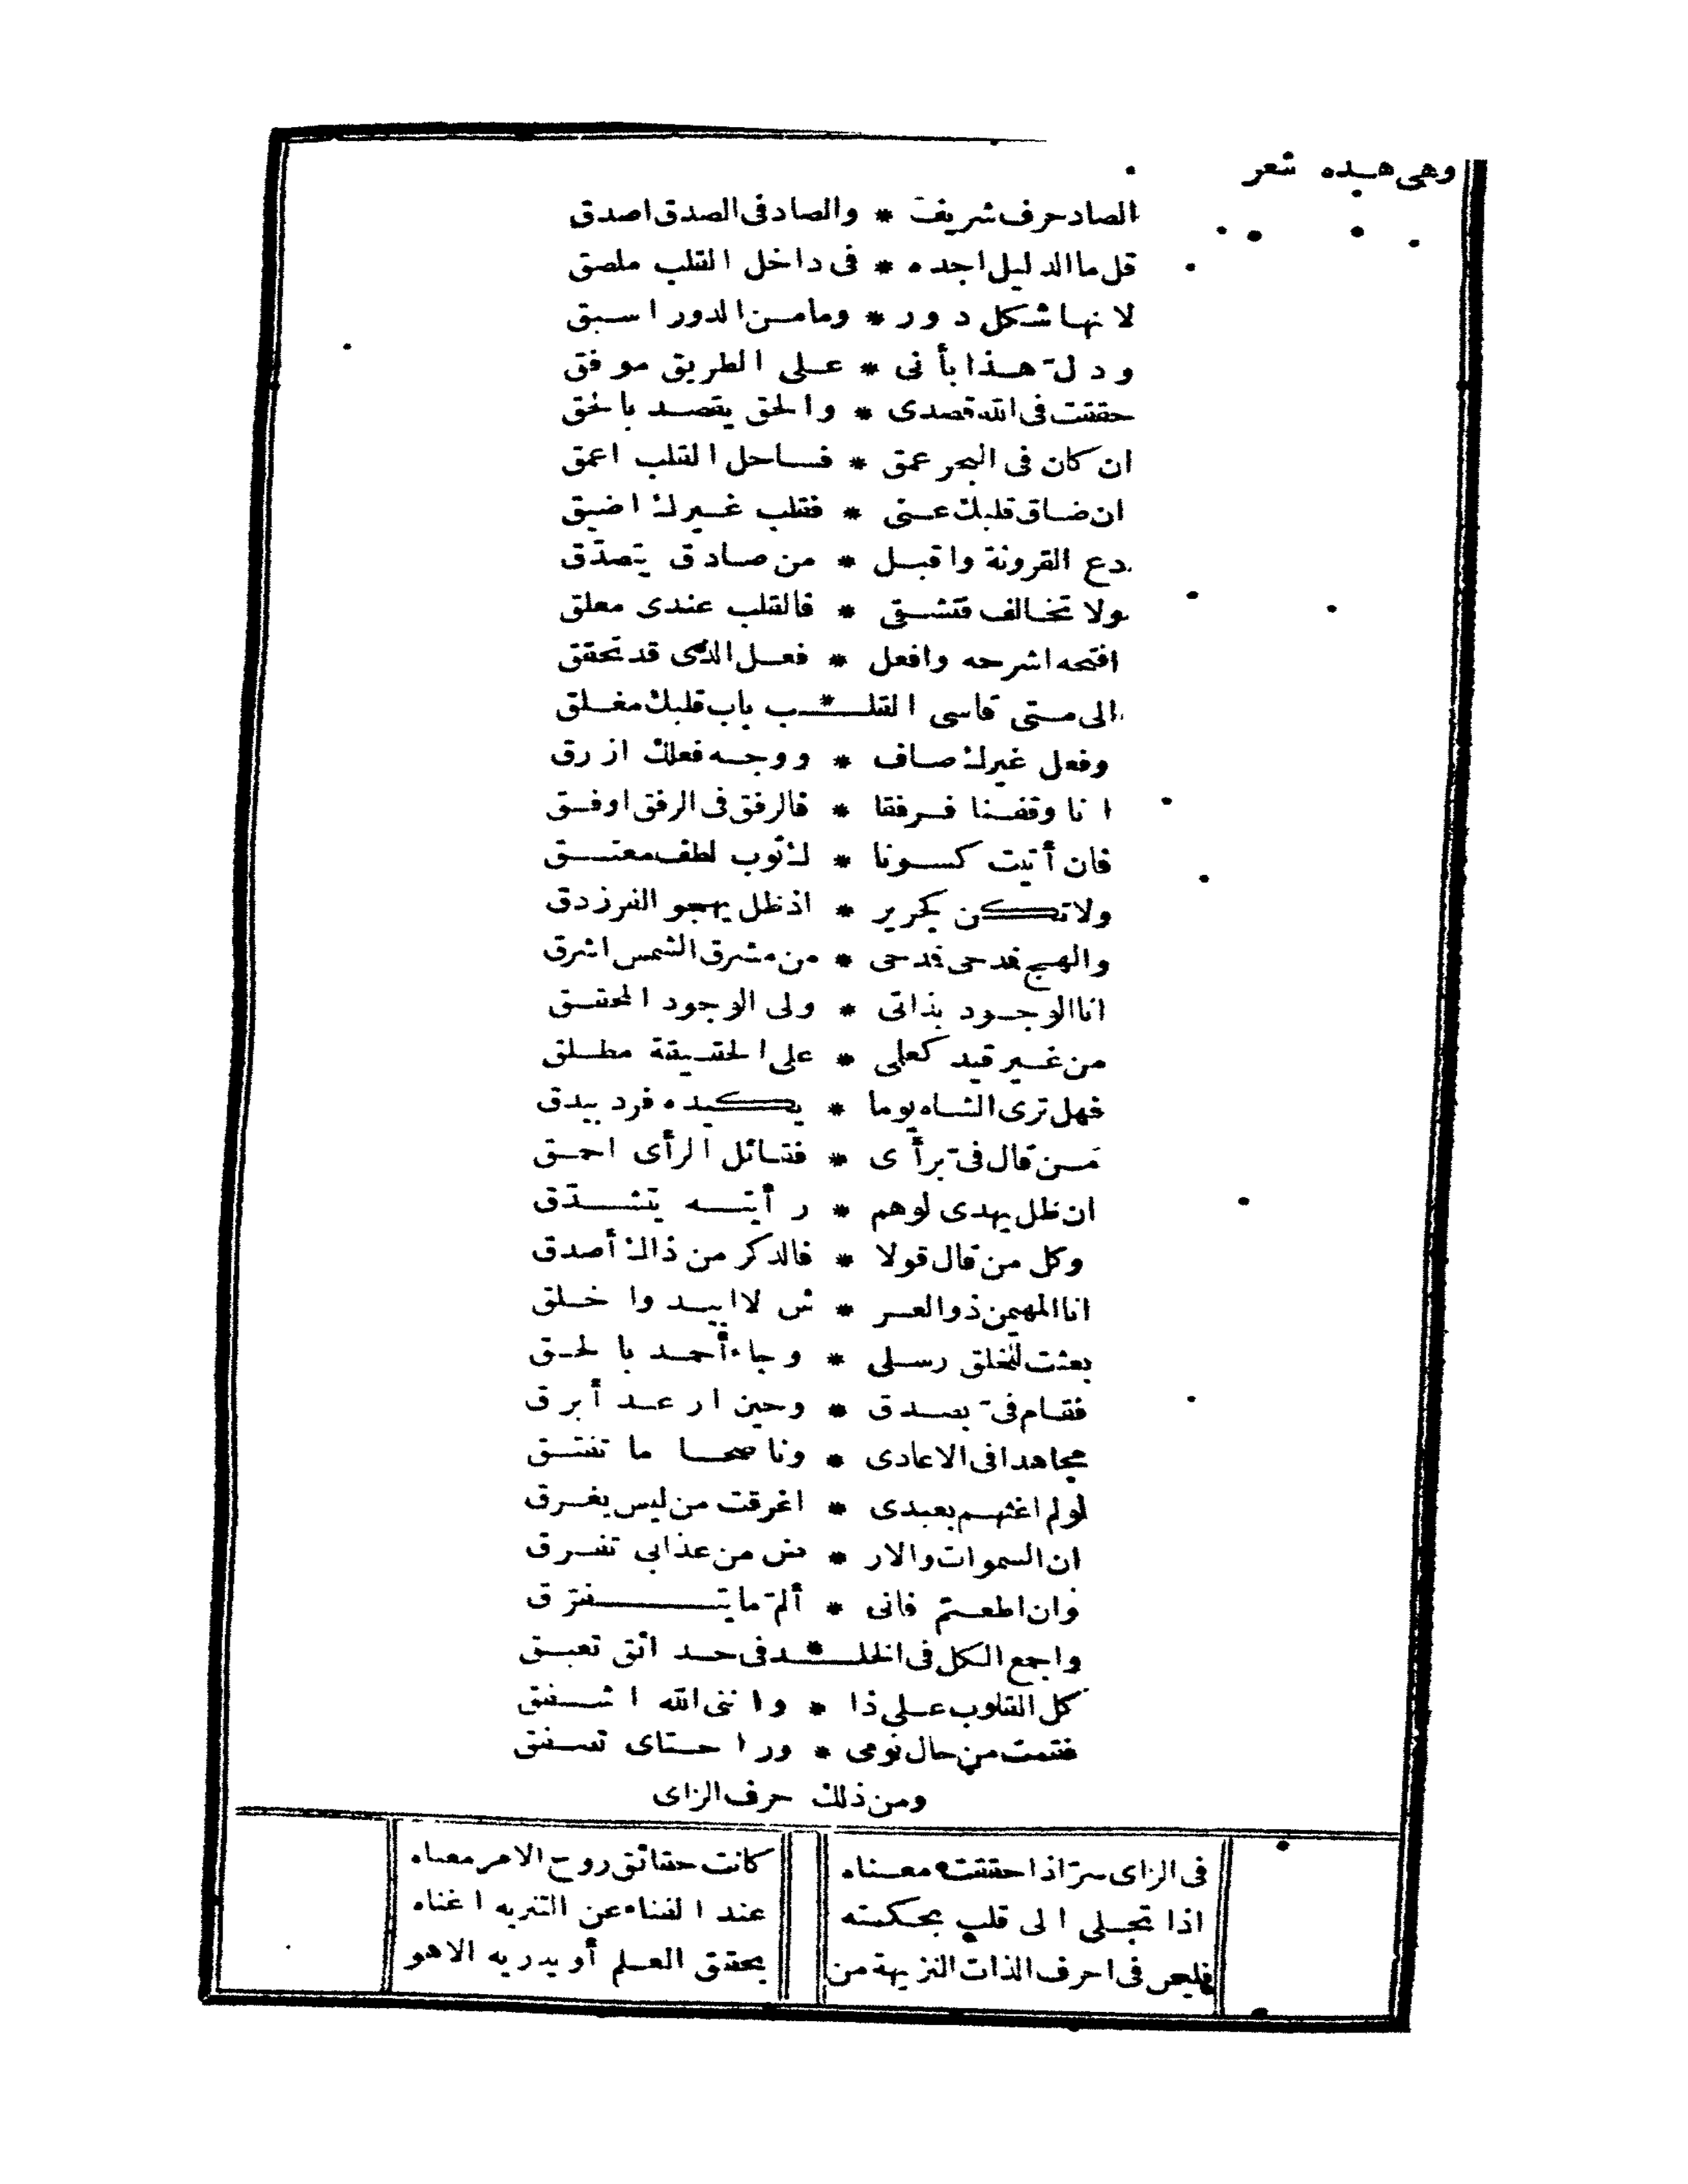 وهى هذه شعر
الصاد حرف شريف * والصاد فى الصدق اصدق
قل ما الدليل اجده * فى داخل القلب ملصق
لانها شكل دور * وما من الدور اسبق
ودل هذا بأنى * على الطريق موفق
حققت فى الله قصدى * والحق يقصد بالحق
ان كان فى البحر عمق * فساحل القلب اعمق
ان ضاق قلبك عنى * فقلب غيرك اضيق
دع القرونة واقبل * من صادق يتصدّق
ولا تخالف فتشقى * فالقلب عندى معلق
افتحه اشرحه وافعل * فعل الذى قد تحقق
الى متى قاسى القلـ * ـب باب قلبك مغلق
وفعل غيرك صاف * ووجه فعلك ازرق
انا وقفنا فرفقا * فالرفق فى الرفق اوفق
فان أتيت كسونا * ك ثوب لطف معتق
ولا تكن كجرير * اذ ظل يهجو الفرزدق
والهج قدحى قدحى * من مشرق الشمس اشرق
انا الوجود بذاتى * ولى الوجود المحقق
من غير قيد كعلمى * على الحقيقة مطلق
فهل ترى الشاه يوما * يكيده فرد بيدق
من قال فىّ برأى * فقائل الرأى احمق
ان ظل يهدى لوهم * رأيته يتشدّق
وكل من قال قولا * فالذكر من ذاك أصدق
انا المهيمن ذو العر * ش لا ابيد واخلق
بعثت للخلق رسلى * وجاء أحمد بالحق
فقام فىّ بصدق * وحين ارعد أبرق
مجاهدا فى الاعادى * وناصحا ما تفتق
لو لم اغثهم بعبدى * اغرقت من ليس يغرق
ان السموات والار * ض من عذابى تفرق
وان اطعتم فانى * ألمّ ما يتفرّق
واجمع الكل فى الخلـ * ـد فى حدائق تعبق
كل القلوب على ذا * واننى الله اشفق
فقمت من حال نومى * وراحتاى تصفق
ومن ذلك حرف الزاى
فى الزاى سرّ اذا حققت معناه كانت حقائق روح الامر معناه
اذا تجلى الى قلب بحكمته عند الفناء عن التنزيه اغناه
فليس فى احرف الذات النزيهة من يحقق العلم أو يدريه الاهو